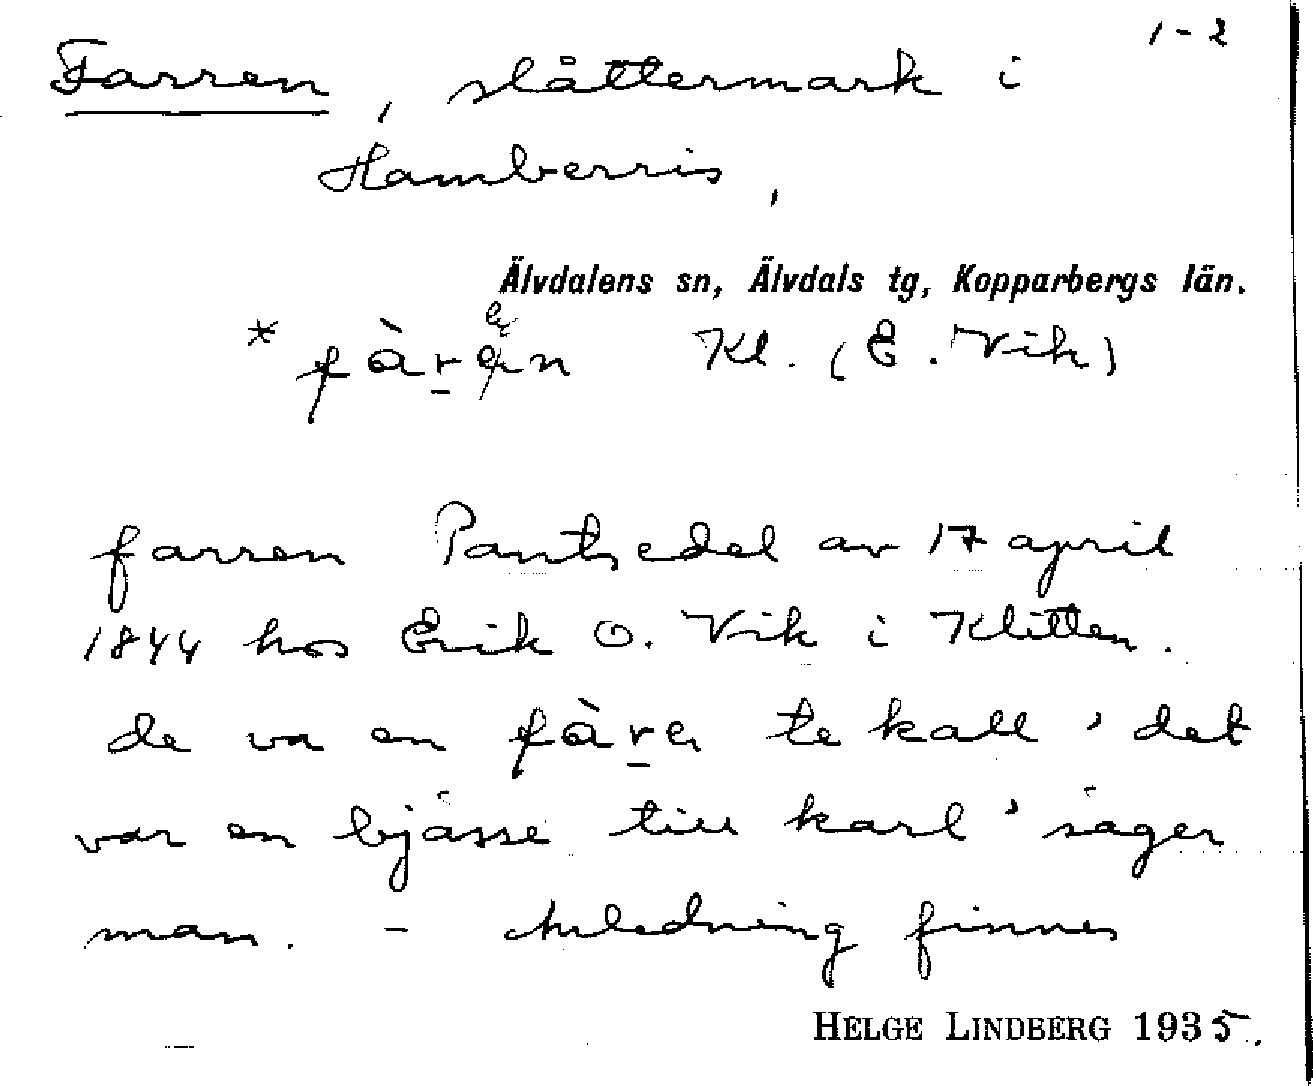 1-2
Farren, slåttermark i
Hamberris,
Älvdalens sn, Älvdals tg, Kopparbergs län.
* fàren Kl. (E. Vik)
farren Pantsedel av 17 april
1844 hos Erik O. Vik i Klitten.
de va en fàre te kall 'det
var en bjässe till karl' säger
man. - Anledning finnes
HELGE LINDBERG 1935.